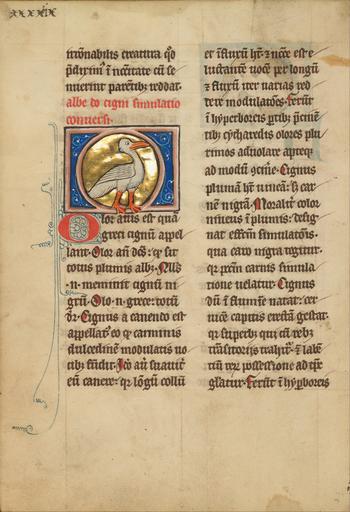 xxxxix
irrōnabilis creatura q̄o
p̄dixim⁹ ī nc̄citate cū se
nuerint parētib; reddat.
albe do cigni simulatio
conuersi.
Olor auis est quā
greci cignū appel
lant. Olor aū dc̄s: qͣ sit
totus plumis alb⁹. Null⁹
.n. meminit cignū ni
grū. Olo .n. grece: totū
dr̄. Cignus a canendo est
appellat⁹. eo qͣ carminis
dulcedinē modulatis uo
cib; fūdit. Iō aū suauit̾
eū canere: qͣ lōgū collū
et īflexū ht̄. ⁊ nc̄ce est e
luctantē uocē per longū
⁊ flexū iter uarias red
dere modulatōes. Ferūt
ī hyperboreis ꝑtib; p̄cinē
tib; cytharedis olores plu
rimos aduolare apteq̄
ad modū ↄcinē. Cignus
plumā ht̄ niueā. ș car
nē nigrā. Moralit̾ color
niueus ī plumis: desig
nat effcm̄ simulatōnis.
qua caro nigra tegitur.
qͣ pcc̄m carnis simula
tione uelatur. Cignus
dū ī flumīe natat: cer
uice captīs erectā gestat.
qͣ supbus qui cū reb;
trāsitorijs trahit̄. ⁊ labē
tiū rerū possessione ad tp̄s
gl̄atur. Ferūt ī hyp̄boreis